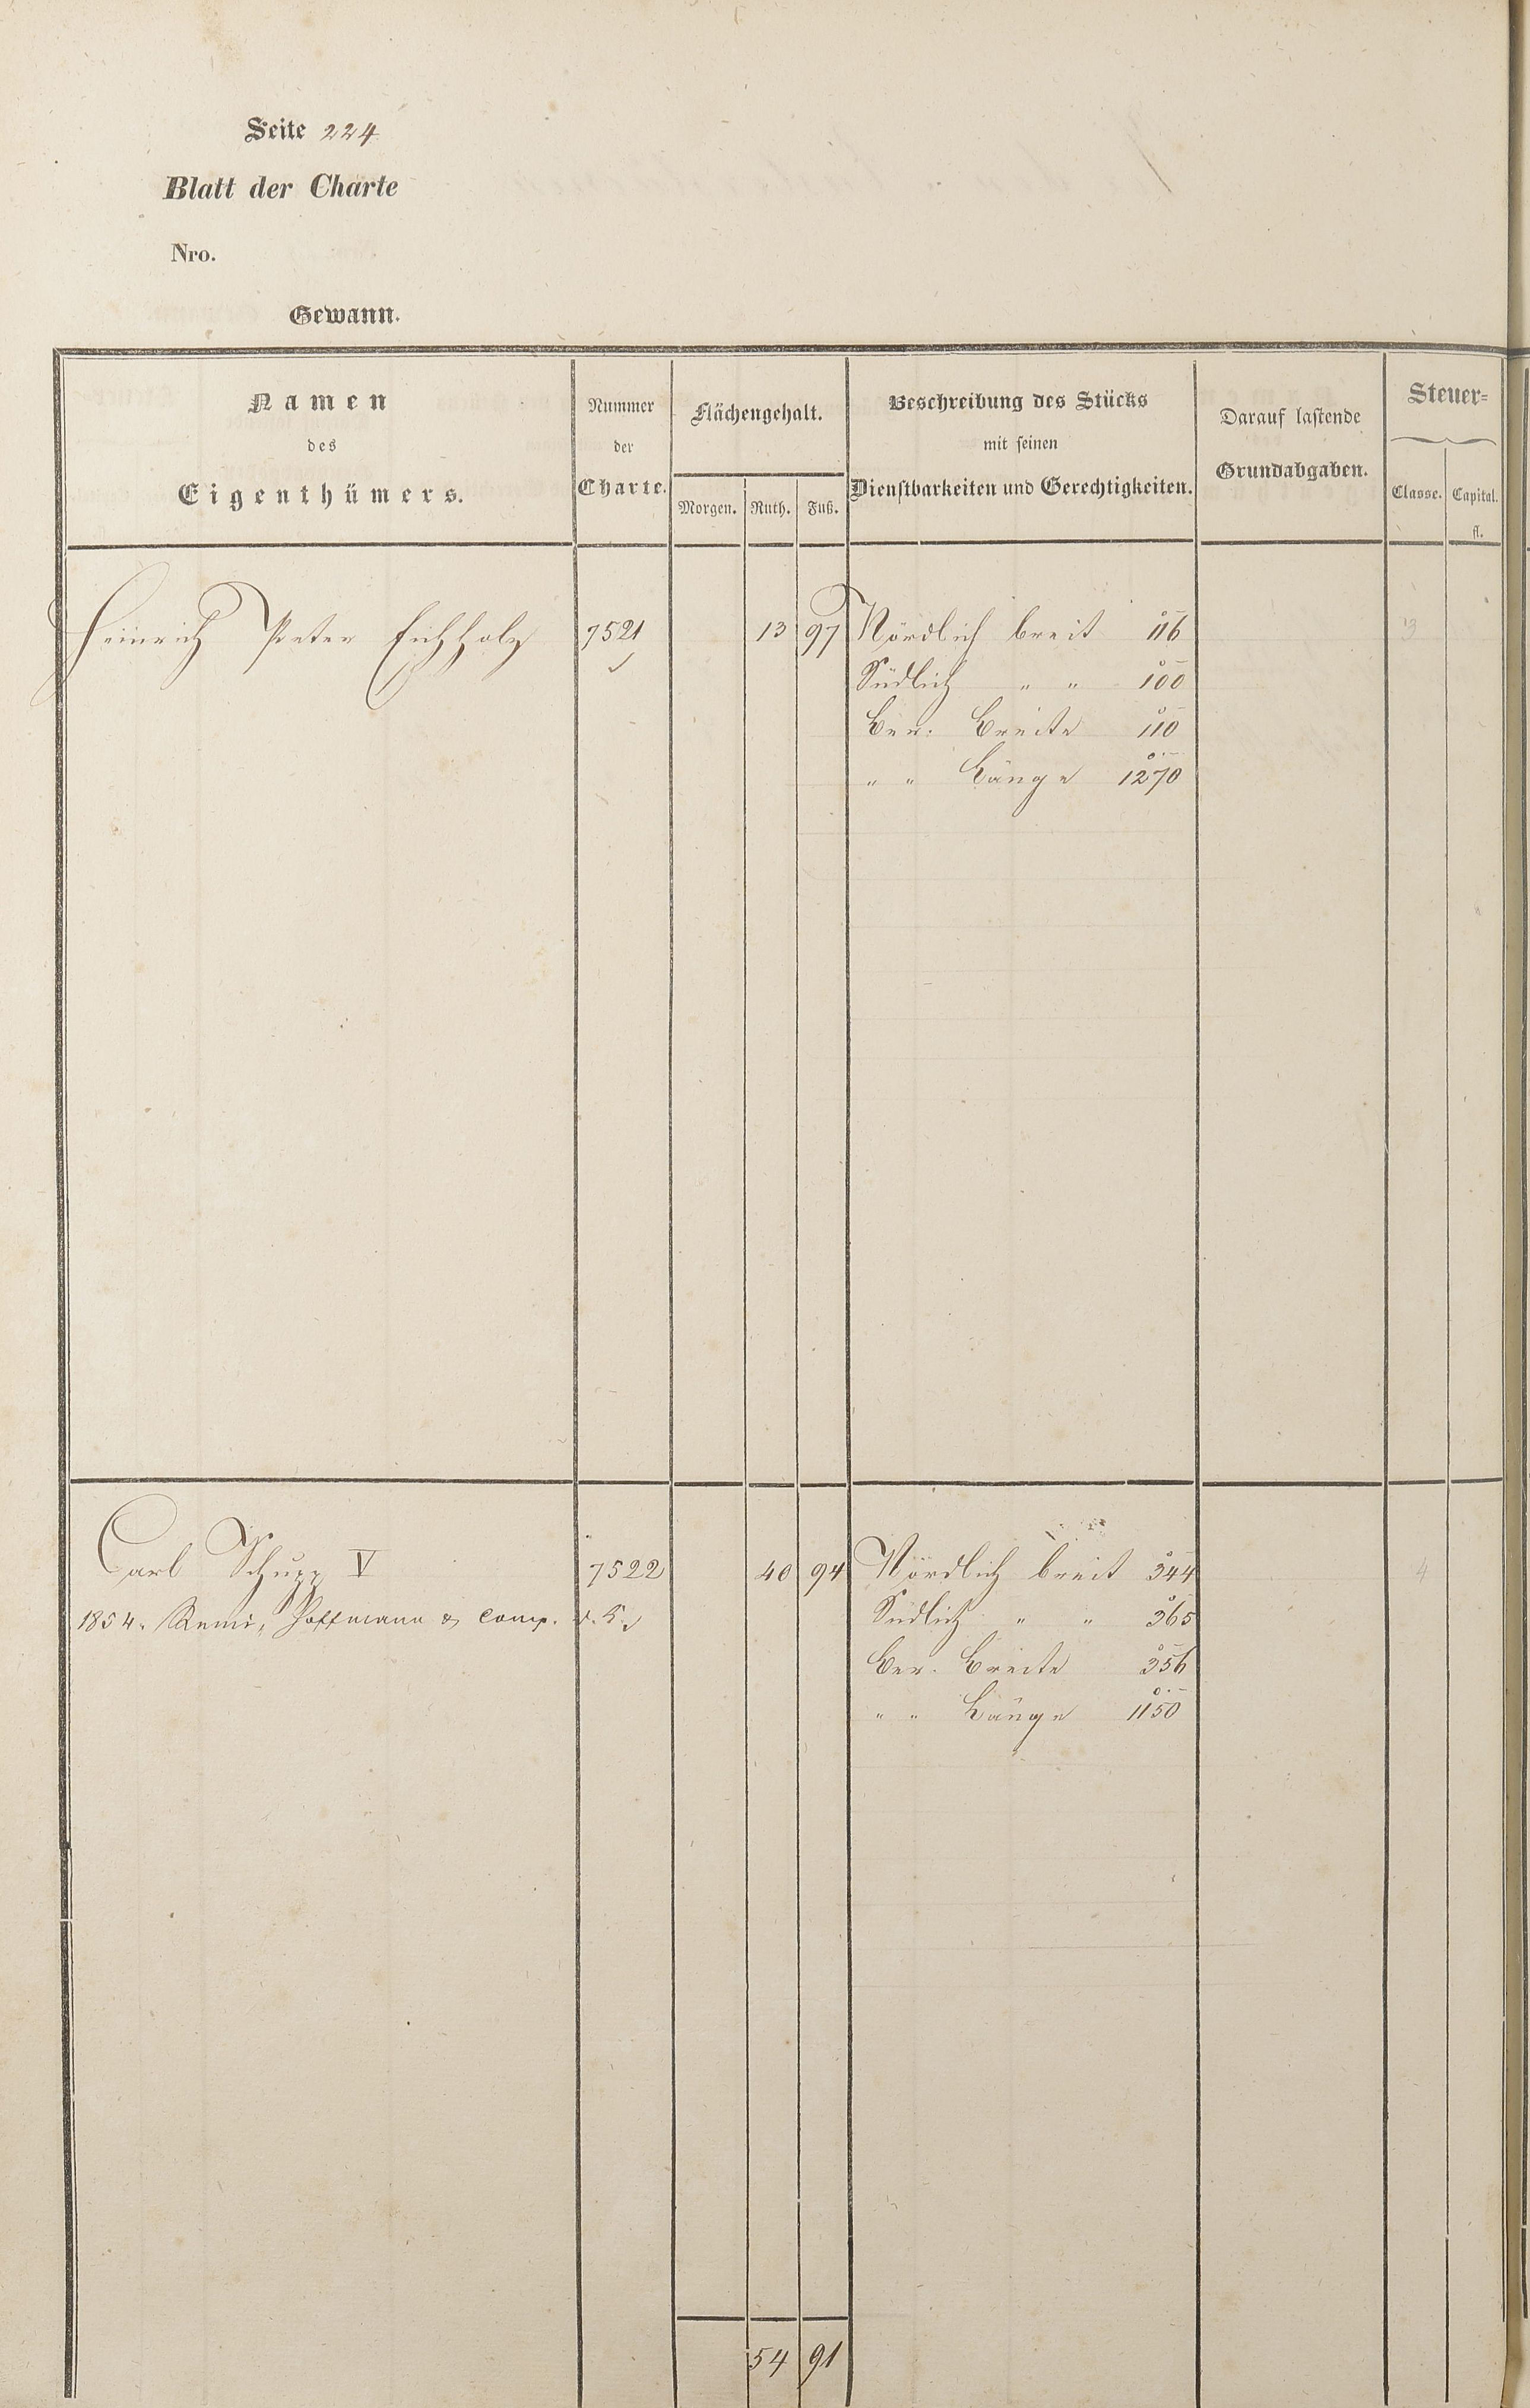 Seite 224
Blatt der Charte
Nro.
Gewann.
Namen
des
Eigenthümers.
Nummer
der
Charte.
Flächengehalt.
Morgen. Ruth. Fuß.
Beschreibung des Stücks
mit seinen
Dienstbarkeiten und Gerechtigkeiten.
Darauf lastende
Grundabgaben.
Steuer=
Classe. Capital.
fl.
Heinrich Peter Eichholz 7521 13 97 Nördlich breit 116 3
Südlich " " 100
Ber. Breite 110
" " Länge 1270
Carl Schupp V 7522 40 94 Nördlich breit 344 4
1854. Remi, Hoffmann & Comp. Südlich " " 365
Ber. Breite 356
" " Länge 1150
54 91